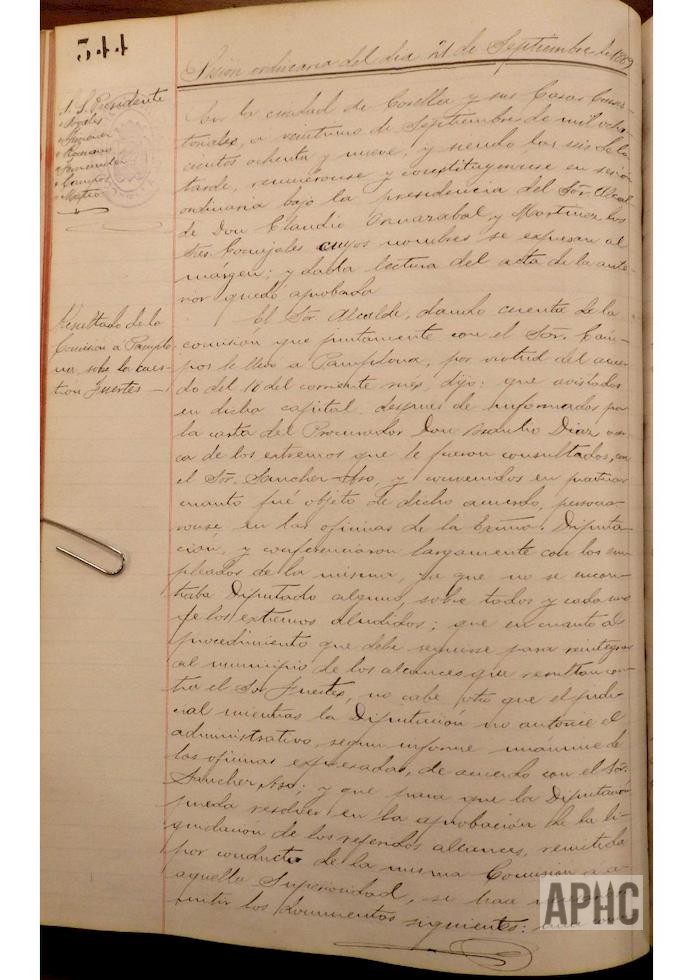 544
Sesión ordinaria del dia 21 de Septiembre de 1889
S. S. Presidente
Campos
En la ciudad de Corella y sus Casas Consis-
toriales, a veintiuno de Septiembre de mil ocho-
cientos ochenta y nueve, y siendo las seis de la
tarde, reunieronse y constituyeronse en sesion
ordinaria bajo la presidencia del Sor. Alcal-
de Don Claudio Ornazabal y Martinez los
Sres. Concejales cuyos nombres se expresan al
márgen; y dada lectura del acta de la ante-
rior quedó aprobada
Resultado de la
Comision a Pamplo-
na, sobre la cues-
tion Fuertes
El Sor. Alcalde, dando cuenta de la
comision que juntamente con el Sor. Cám-
pos le llevó a Pamplona, por virtud del acuer-
do del 18 del corriente mes, dijo: que avistados
en dicha capital despues de informados por
la carta del Procurador Don Diaz acer-
ca de los estremos que le fueron consultados, con
el Sor. Sancher Aso, y convenidos en practicar
cuanto fué objeto de dicho acuerdo, persona-
ronse en las oficinas de la Excma. Diputa-
ción, y conferenciaron largamente con los em-
pleados de la misma, ya que no se encon-
traba Diputado alguno, sobre todos y cada uno
de los estremos aludidos; que en cuanto al
procedimiento que debe seguirse para reintegrar
al municipio de los alcances que resultan con-
tra el Sor Fuertes, no cabe otro que el judi-
cial mientras la Diputación no autorice el
administrativo, segun informe unanime de
las oficinas expresadas, de acuerdo con el Sor.
Sancher Aso; y que para que la Diputacion
pueda resolver en la aprobación de la li-
quidacion de los referidos alcances, remitida
por conducto de la misma Comision a
aquella Superioridad, se hace
mitir los documentos siguientes:
APHC